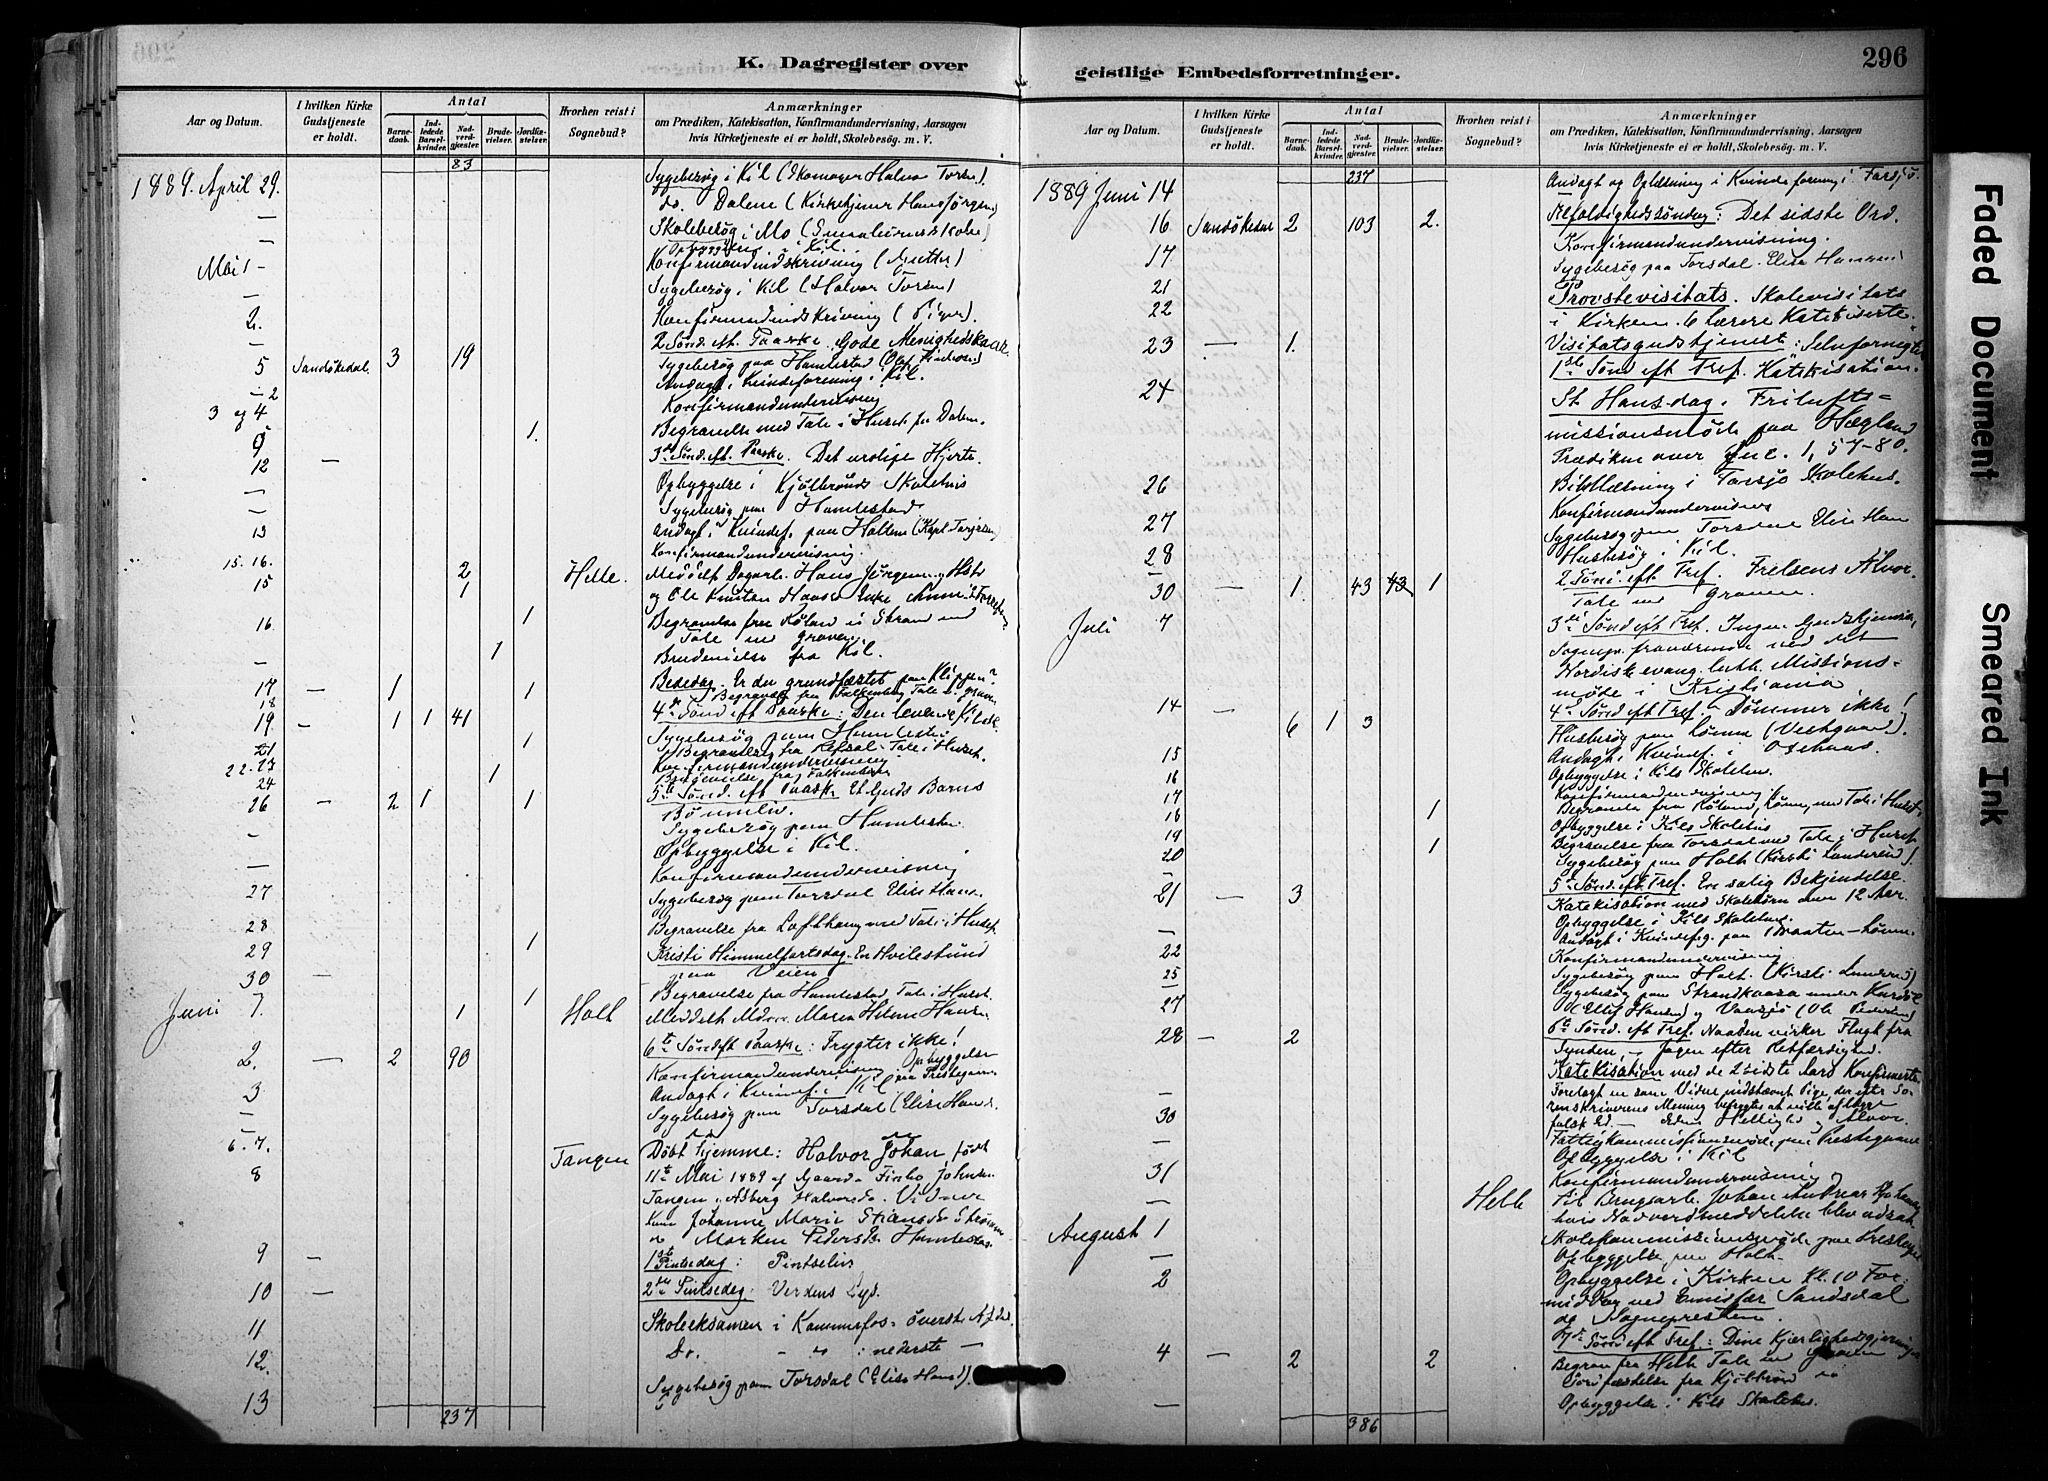 296
K. Dagregister over
geistlige Embedsforretninger.
Aar og Datum.
I hvilken Kirke Gudstjeneste er holdt.
Antal
Barnedaab.
Indledede Barselkvinder.
Nadverdgjæster.
Brudevielser.
Jordfæstelser.
Hvorhen reist i Sognebud?
Anmærkninger
om Prædiken, Katekisation, Konfirmandundervisning, Aarsagen
hvis Kirketjeneste ei er holdt, Skolebesøg. m. V.
83
1889. April 29. Sygebesøg i Kil
do. Dalene
— Skolebesøg i Mo
Opbyggelse i Kil.
Mai 1 Konfirmandindskrivning (Gutter)
— Sygebesøg i Kil (Halvor
2. Konfirmandindskrivning (Piger).
5 Sandökedal 3 19 2 Sønd. eft. Paaske. Gode Menighedskaar.
Sygebesøg paa Humlestad
Andagt i Kvindeforening i Kil.
3 og 4 Konfirmandundervisning
9 1. Begravelse med Tale i Huset fra Dalene.
12 — 3die Sønd. eft. Paaske. Det urolige Hjerte.
— Opbyggelse i Kjølbrønds Skolehus
— Sygebesøg paa Humlestad
13 Andagt i Kvindef. paa Holtene
15. 16. Konfirmandundervisning.
15 2 Helle. Meddelt
1 og Ole Knutsen
16. 1 Begravelse fra
Tale ved graven.
— 1 Brudevielse fra Kil.
17 — 1 1 Bededag. Er du grundfæstet paa Klippen?
18 Begravelse fra Falkenberg Tale v. graven
19 — 1 1 41 4de Sønd eft Paaske: Den levende Kilde.
Sygebesøg paa Humlestad
21 1 Begravelse fra Refsal. Tale i Huset.
22. 23 Konfirmandundervisning
24 1 Brudevielse fra Falkenberg
26 — 2 1 1 5te Sønd. eft Paaske Et Guds Barns
Bønneliv.
— Sygebesøg paa Humlestad
— Opbyggelse i Kil.
27 Konfirmandundervisning
28 Sygebesøg paa Torsdal Elise Hans.
29 1 Begravelse fra Lofthaug med Tale i Huset
30 — Kristi Himmelfartsdag. En Hvilestund
paa Veien
Juni 1. 1 1 Holt Begravelse fra Humlestad Tale i Huset.
Meddelt Maren Helene Hansen
2. — 2 90 6te Sønd eft Paaske: Frygter ikke!
3 Konfirmandundervisning Opbyggelse
— Andagt i Kvindef. i Kil
6. 7. Sygebesøg paa Torsdal (Elise Hans.
8 Tangen Døbt hjemme: Halvor Johan, født
11te Mai 1889 af
Tangen
Johanne Marie
Maren Pedersdt. Humlestad.
9 — 1ste Pintsedag: Pintselius
10 — 2den Pintsedag: Verdens Lys.
11 Skoleeksamen i Kammerfos øverste Afdel.
12. Do. — " — : nederste —
13 Sygebesøg paa Torsdal (Elise Hans).
237
Aar og Datum.
I hvilken Kirke Gudstjeneste er holdt.
Antal
Barnedaab.
Indledede Barselkvinder.
Nadverdgjæster.
Brudevielser.
Jordfæstelser.
Hvorhen reist i Sognebud?
Anmærkninger
om Prædiken, Katekisation, Konfirmandundervisning, Aarsagen
hvis Kirketjeneste ei er holdt, Skolebesøg. m. V.
237
1889 Juni 14 Andagt og Oplæsning i Kvindeforening i Farsjø.
16 Sandökedal 2 103 2. Trefoldighedssøndag: Det sidste Ord.
17 Konfirmandundervisning.
21 Sygebesøg paa Torsdal. Elise Hansen
22 Provstevisitats. Skolevisitats
i Kirken. 6 Lærere Katekiserte.
23 — 1. Visitatsgudstjenest: Selvfornegtelse
1ste Sønd eft Tref. Katekisation.
24 St. Hansdag. Frilufts-
missionsmøde paa Hægland
Prædiken over Luc. 1, 57-80.
26 Bibellæsning i Farsjø Skolehus.
27 Konfirmandundervisning
28 Sygebesøg paa Torsdal Elise Hans
Husbesøg i Kil.
30 — 1. 43 43 1 2 Sønd. eft Tref. Frelsens Alvor.
Tale ved graven.
Juli 7 3die Sønd eft Tref. Ingen Gudstjeneste,
Sognepr. fraværende ved det
Nordisk evang. luth. Missions-
møde i Kristiania
14 — 6 1 3 4de Sønd eft Tref. Dømmer ikke!
Husbesøg paa Lønne (Vestgaard).
15 Andagt i Kvindef. i
16 Opbyggelse i Kils Skolehus.
17 Konfirmandundervisning
18 1 Begravelse fra med Tale i Huset.
19 Opbyggelse i Kils Skolehus
20 1 Begravelse fra Torsdal med Tale i Huset
— Sygebesøg paa Holt (Kirsti
21 — 3 5te Sønd eft Tref. En salig Bekjendelse.
Katekisation med Skolebørn over 12 Aar.
— Opbyggelse i Kils Skolehus.
22 Andagt i Kvindefg. paa Braaten - Lønne.
25 Konfirmandundervisning
— Sygebesøg paa Holt. (Kirsti
27 Sygebesøg paa Strandkaasa under
(Ellef Hansen) og Vaasjø (Ole Pedersen)
28 — 2 6te Sønd. eft Tref. Naaden virker Flugt fra
Synden, — Jagen efter Retfærdighed.
Katekisation med de 2 sidste Aars Konfirmerte.
— Foretagt en som Vidne indstævnt Pige, der efter So-
30 renskriverens Mening befrygtes at ville aflægge
falsk Ed. — Edens Hellighed og Alvor.
— Fattigkommissionsmøde paa Prestegaarden
Opbyggelse i Kil
31 Konfirmandundervisning
— Helle til Brugsarb. Johan Andreas
hvis Nadverdmeddelelse blev udsat
August 1 Skolekommissionsmøde paa Prestegd.
— Opbyggelse paa Holt.
2 Opbyggelse i Kirken Kl. 10 For-
middag ved Emissær Sandsdal
og Sognepresten.
4 — 2 2 7de Sønd eft Tref.: Dine Kjærlighedsgjerninger
Begrav. fra Helle Tale ved graven
Jordfæstelse fra Kjølbrønd
— Opbyggelse i Kils Skolehus.
386
Faded Document
Smeared Ink